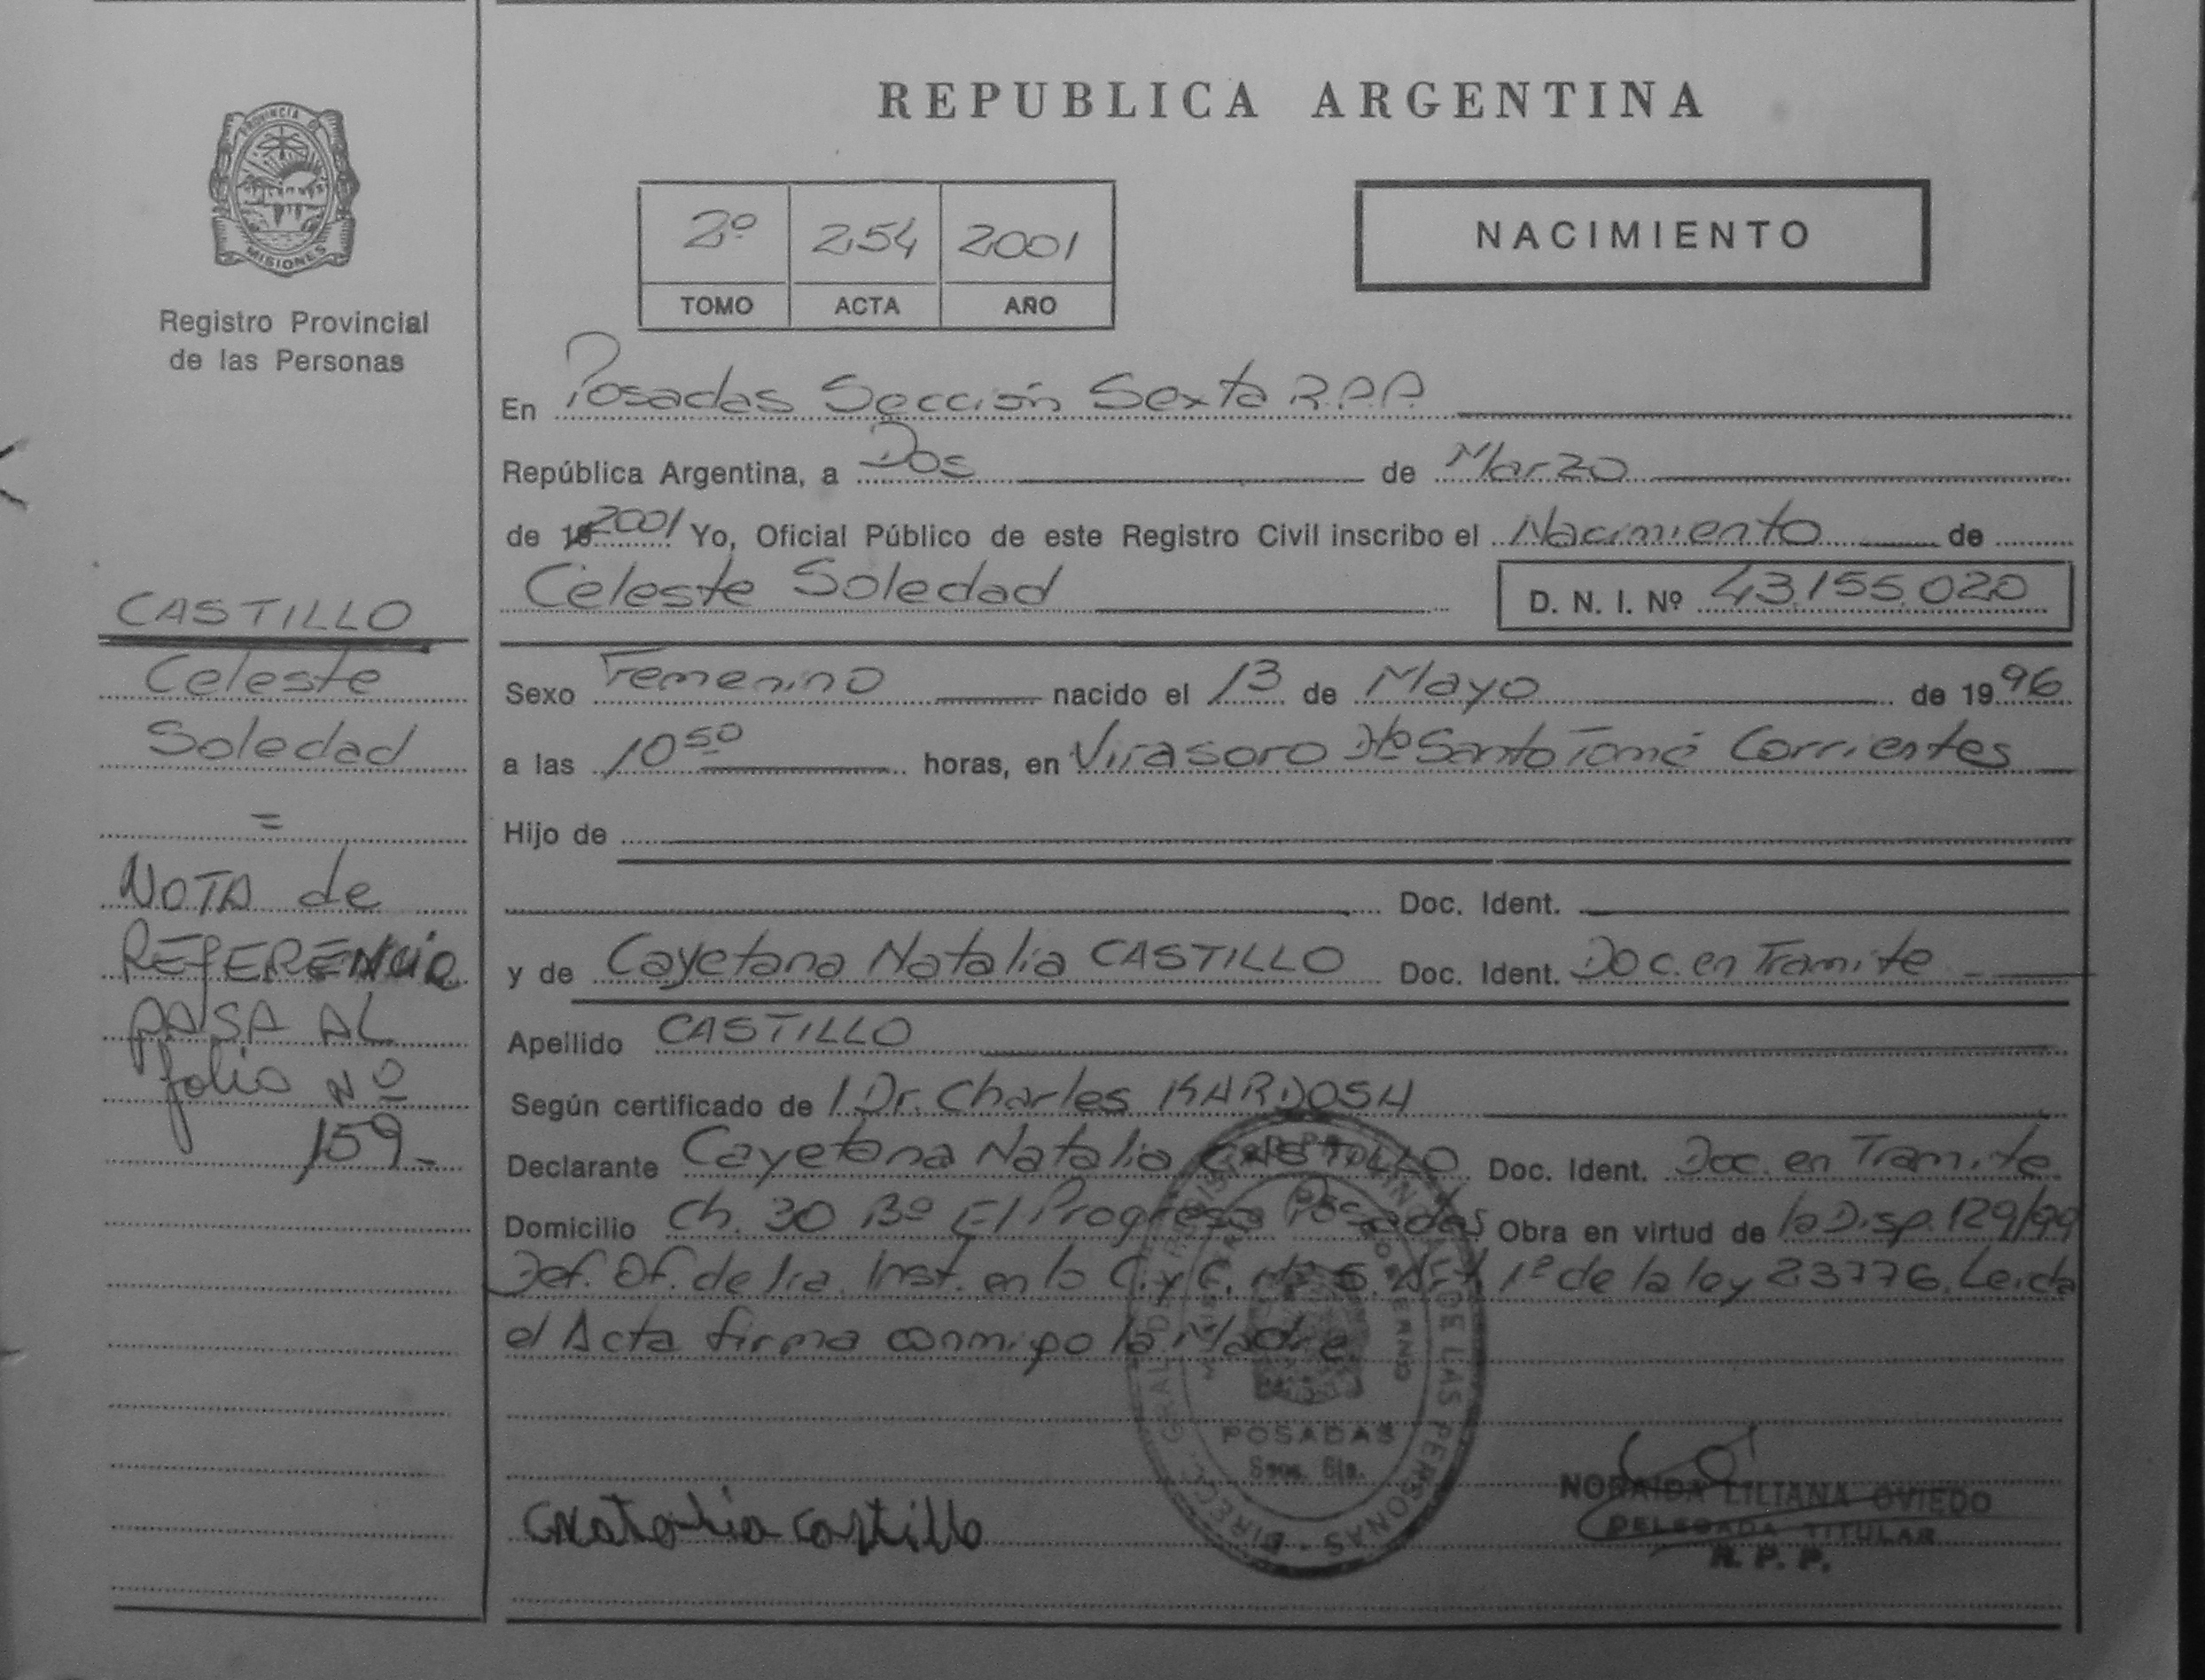 REPUBLICA ARGENTINA
PROVINCIA DE
MISIONES
Registro Provincial
de las Personas
2º 254 2001
TOMO ACTA AÑO
NACIMIENTO
En Posadas Sección Sexta R.P.P.
República Argentina, a Dos de Marzo
de 19 2001 Yo, Oficial Público de este Registro Civil inscribo el Nacimiento de
Celeste Soledad D. N. I. Nº 43.155.020
Sexo Femenino nacido el 13 de Mayo de 19 96
a las 10 50 horas, en Virasoro Dto Santo Tomé Corrientes
Hijo de
Doc. Ident.
y de Cayetana Natalia CASTILLO Doc. Ident. Doc. en Tramite
Apellido CASTILLO
Según certificado de 1 Dr. Charles KARDOSH
Declarante Cayetana Natalia CASTILLO Doc. Ident. Doc. en Tramite
Domicilio Ch. 30 Bº El Progreso Posadas Obra en virtud de la Disp. 129/99
Def. Of. de 1ra. Inst. en lo C. y C. Nº 6. Art 1º de la ley 23776. Leida
el Acta firma conmigo la Madre.
CASTILLO
Celeste
Soledad
=
NOTA de
REFERENCIA
PASA AL
folio Nº
159-
DIRECC. GRAL. DEL REGISTRO PROVINCIAL DE LAS PERSONAS
MINISTERIO DE GOBIERNO
POSADAS
Secc. 6ta.
CNatalia Castillo
NORAIDA LILIANA OVIEDO
DELEGADA TITULAR
R. P. P.